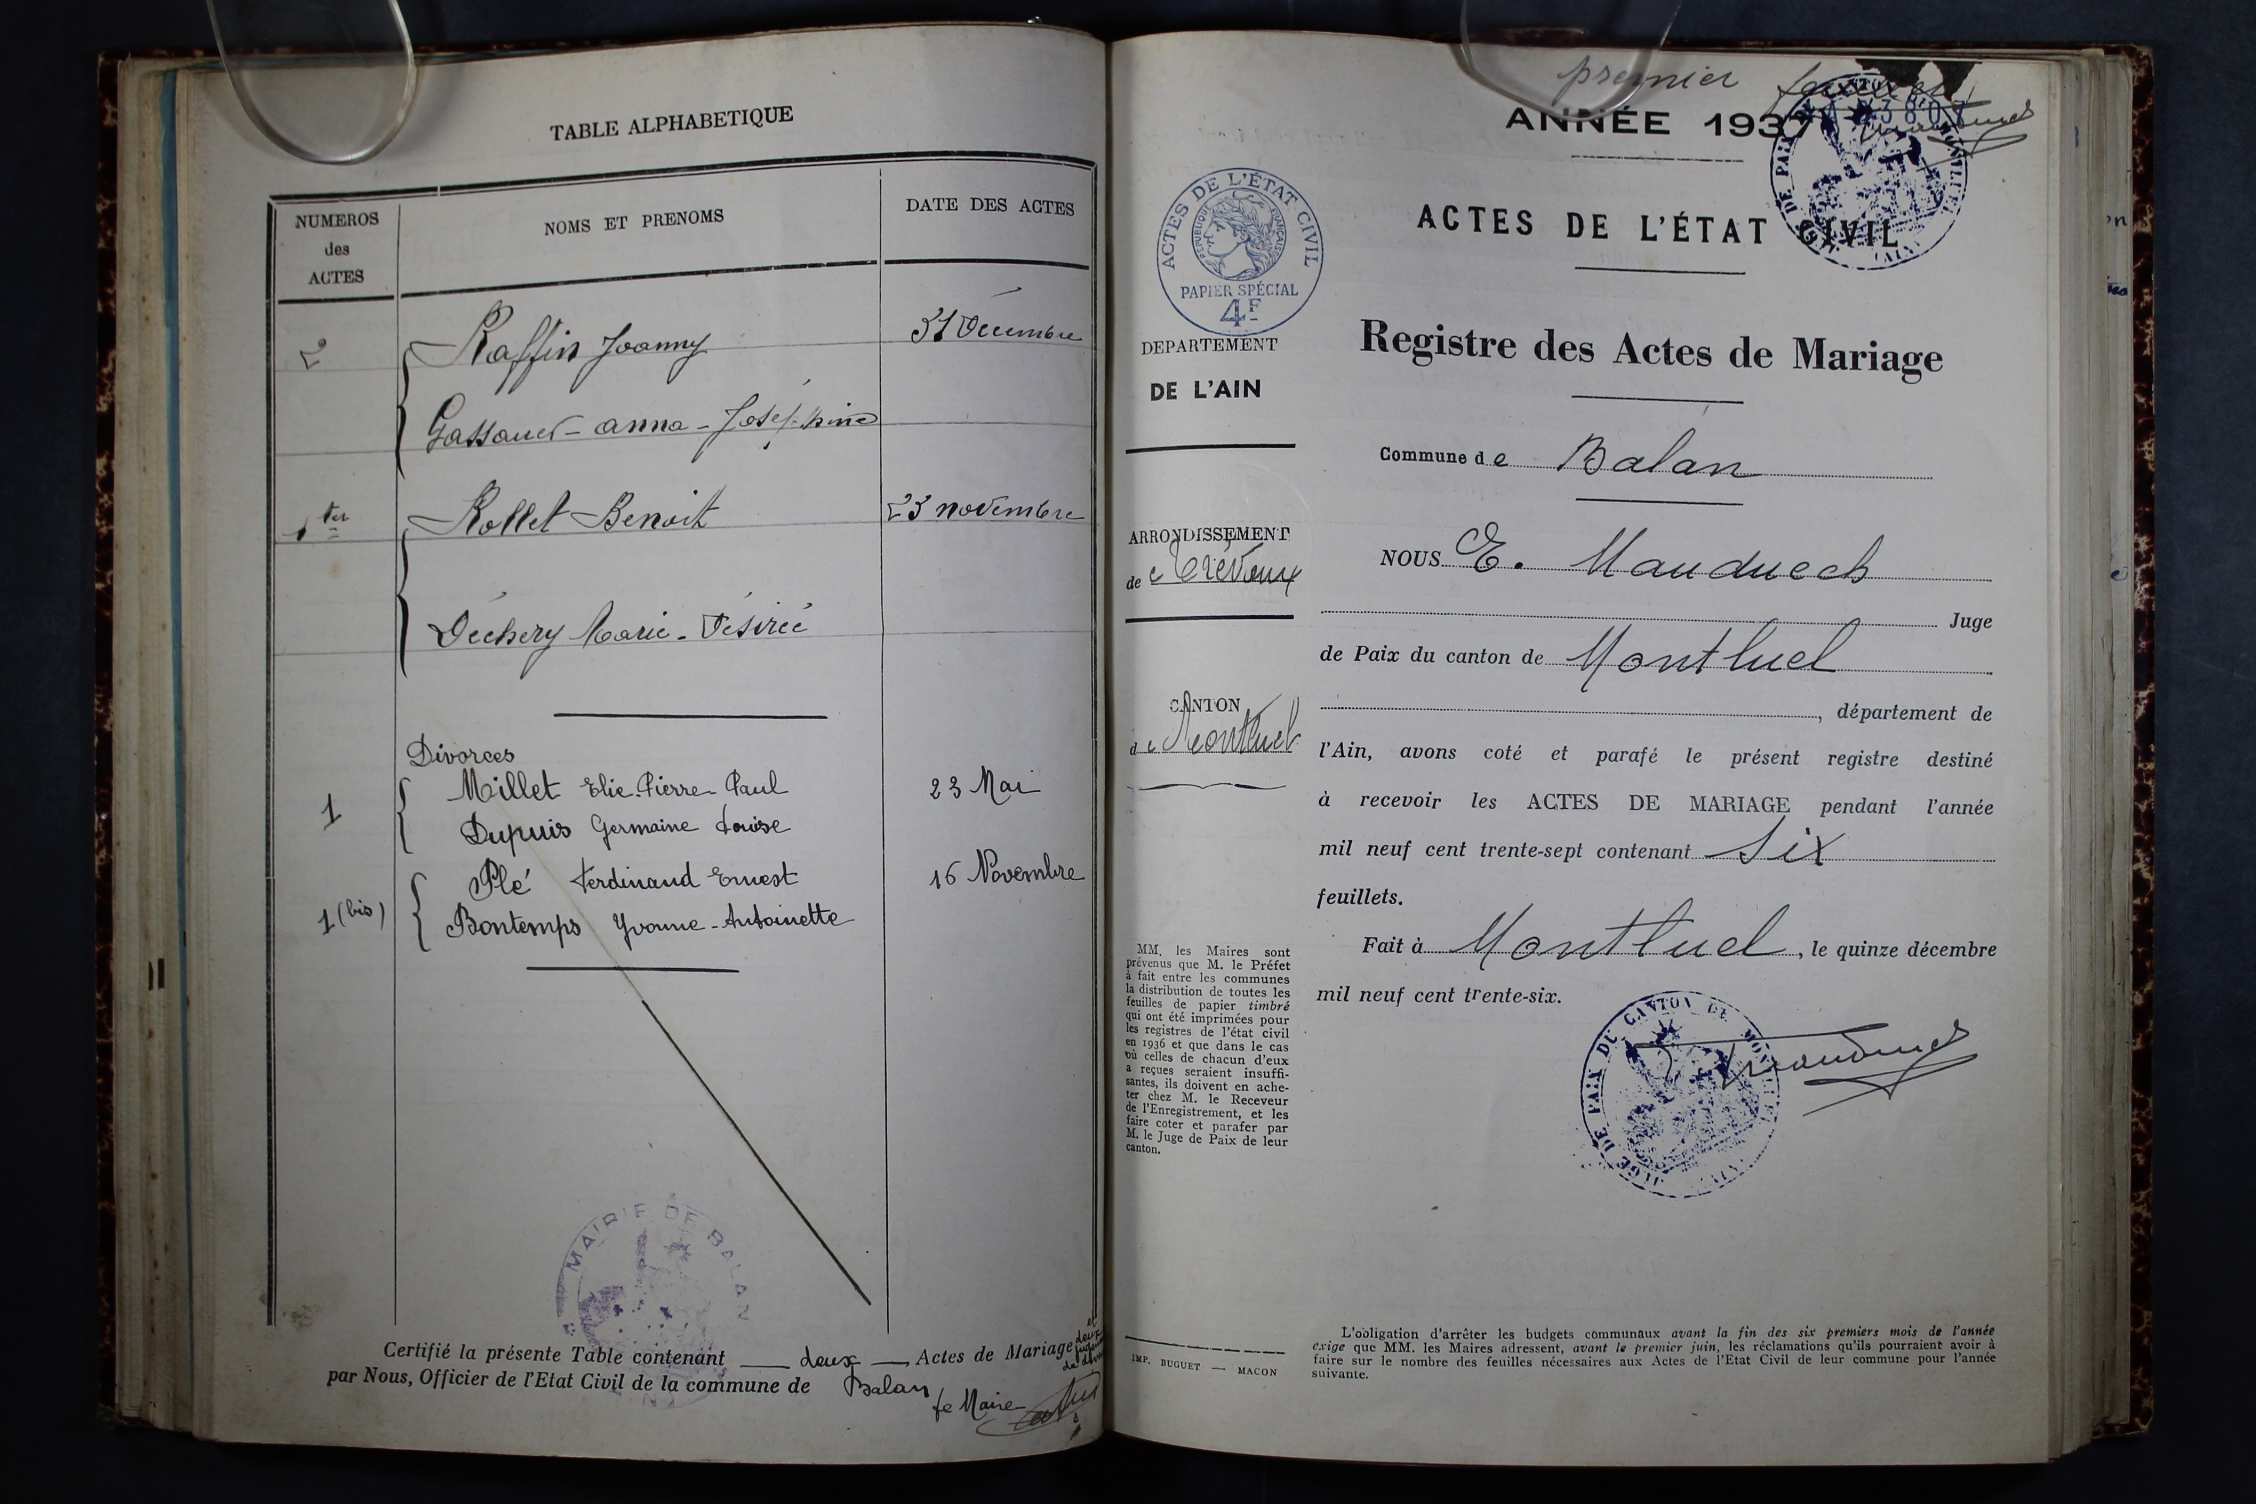 TABLE ALPHABETIQUE
NUMEROS
des
ACTES
NOMS ET PRENOMS
DATE DES ACTES
2
Raffin Joanny
31 Décembre
Gassauer - anna - Joséphine
1 ter
Rollet Benoit
23 novembre
Déchery Marie - Désirée
Divorces
1
Millet Elie-Pierre-Paul
23 Mai
Dupuis Germaine Louise
Plé Ferdinand Ernest
16 Novembre
1 (bis)
Bontemps Yvonne-Antoinette
MAIRIE DE BALAN
Certifié la présente Table contenant deux Actes de Mariage et deux
par Nous, Officier de l'Etat Civil de la commune de Balan
le Maire
premier feuillet
ANNÉE 1937
ACTES DE L'ÉTAT CIVIL
ACTES DE L'ÉTAT CIVIL
RÉPUBLIQUE FRANÇAISE
PAPIER SPÉCIAL
4F
DEPARTEMENT
DE L'AIN
Registre des Actes de Mariage
Commune de Balan
ARRONDISSEMENT
de Trévoux
NOUS E. Mauduech
Juge
de Paix du canton de Montluel
CANTON
de Montluel
, département de
l'Ain, avons coté et parafé le présent registre destiné
à recevoir les ACTES DE MARIAGE pendant l'année
mil neuf cent trente-sept contenant six
feuillets.
Fait à Montluel, le quinze décembre
mil neuf cent trente-six.
JUGE DE PAIX DU CANTON DE MONTLUEL (AIN)
MM. les Maires sont
prévenus que M. le Préfet
à fait entre les communes
la distribution de toutes les
feuilles de papier timbré
qui ont été imprimées pour
les registres de l'état civil
en 1936 et que dans le cas
où celles de chacun d'eux
a reçues seraient insuffi-
santes, ils doivent en ache-
ter chez M. le Receveur
de l'Enregistrement, et les
faire coter et parafer par
M. le Juge de Paix de leur
canton.
IMP. BUGUET — MACON
L'obligation d'arrêter les budgets communaux avant la fin des six premiers mois de l'année
exige que MM. les Maires adressent, avant le premier juin, les réclamations qu'ils pourraient avoir à
faire sur le nombre des feuilles nécessaires aux Actes de l'Etat Civil de leur commune pour l'année
suivante.